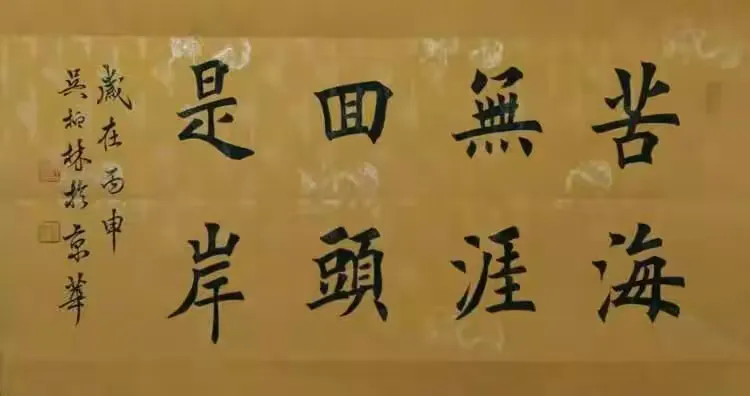 苦海
無涯
回頭
是岸
歲在丙申
吳柏林於京華